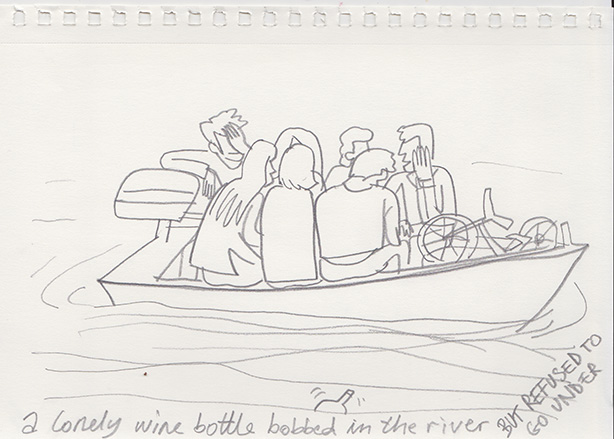 a lonely wine bottle bobbed in the river
BUT REFUSED TO
GO UNDER